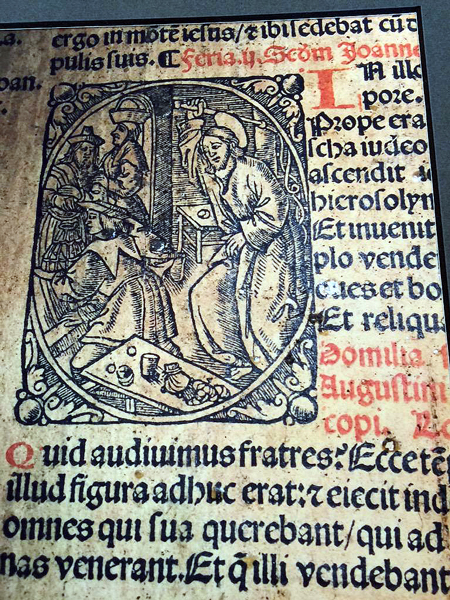 a. ergo in mōte iesus/ ⁊ ibi sedebat cū d
pulis suis. ¶ Feria .ij. Scdm Joanne
oan.
IN illo
pore.
Prope era
scha iudeo
ascendit
hierosolym
Et inuenit
plo vende
oues et bo
Et reliqua
Homilia
Augustini
copi.
Quid audiuimus fratres? Ecce tē
illud figura adhuc erat: ⁊ eiecit ind
omnes qui sua querebant/ qui ad
nas venerant. Et q̄ illi vendebant